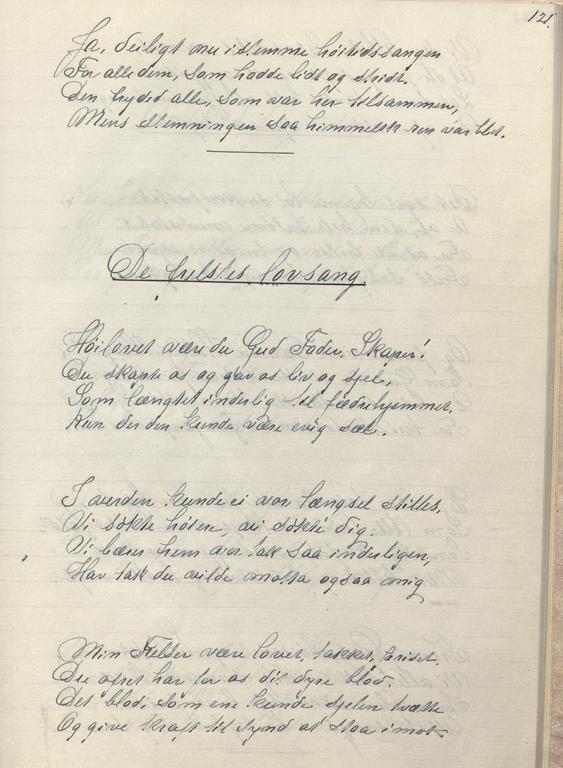 121.
Ja, deiligt nu istemme höitidssangen
For alle dem, som hadde lidt og stridt.
Den fryded alle, som var her tilsammen,
Mens stemningen saa himmelsk ren var blet.
De frelstes lovsang.
Höilovet være du Gud Fader, Skaper!
Du skapte os og gav os liv og sjel,
Som længtet inderlig til fædrehjemmet,
Kun der den kunde være evig sæl.
I verden kunde ei vor længsel stilles.
Vi sökte höiere, vi sökte dig.
Vi bærer frem vor tak saa inderligen,
Hav tak du vilde motta ogsaa mig
Min Frelser være lovet, takket, priset.
Du ofret har for os dit dyre blod.
Det blod, som ene kunde sjelen tvætte
Og give kraft til synd at staa imot.